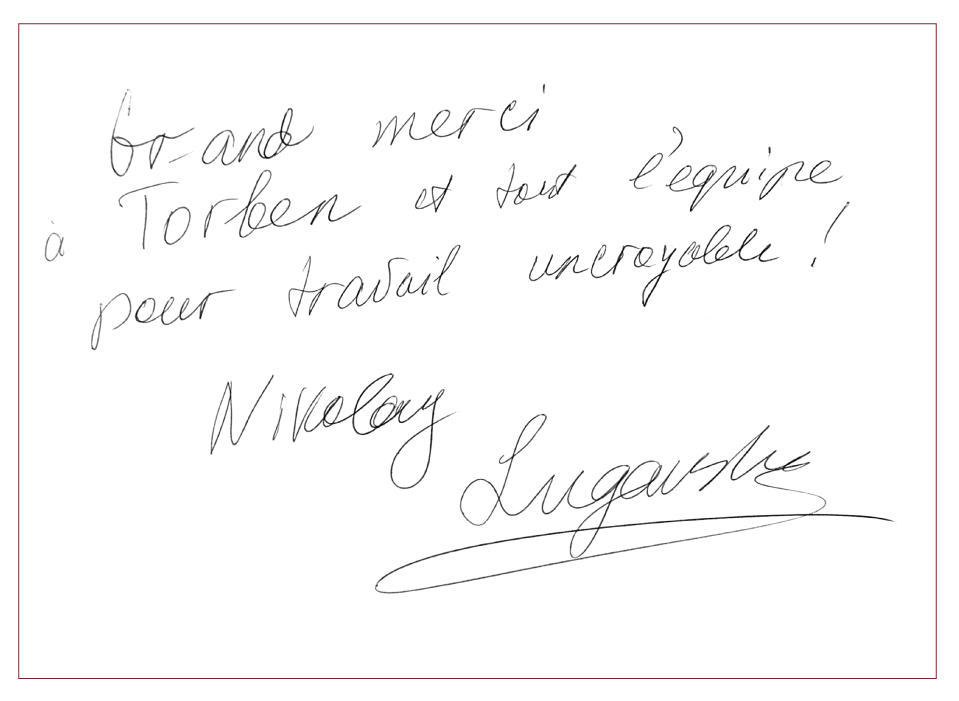 Grand merci
à Torben et tout l'equipe
pour travail uncroyable !
Nikolay
Lugavsky